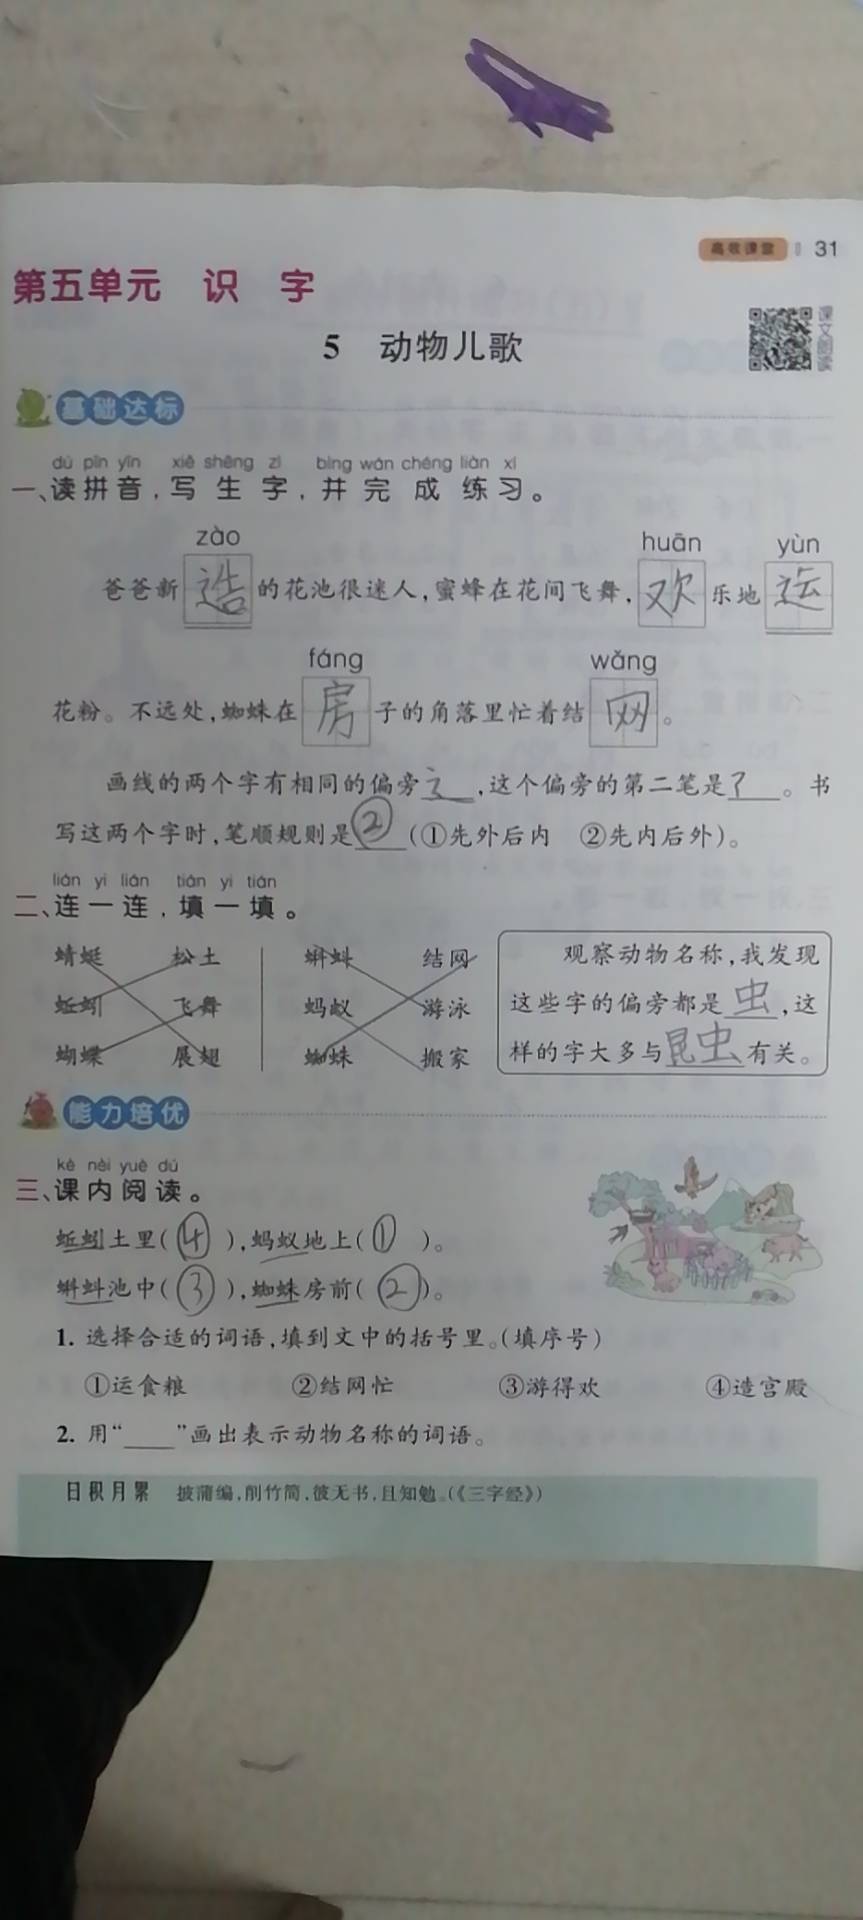 高效课堂 31
第五单元 识 字
5 动物儿歌
课文朗读
基础达标
dú pīn yīn xiě shēng zì bìng wán chéng liàn xí
一、读拼音,写生字,并完成练习。
zào huān yùn
爸爸新造的花池很迷人,蜜蜂在花间飞舞,欢乐地运
fáng wǎng
花粉。不远处,蜘蛛在房子的角落里忙着结网。
画线的两个字有相同的偏旁辶,这个偏旁的第二笔是㇋。书
写这两个字时,笔顺规则是②(①先外后内 ②先内后外)。
lián yi lián tián yi tián
二、连一连,填一填。
蜻蜓 松土 蝌蚪 结网 观察动物名称,我发现
蚯蚓 飞舞 蚂蚁 游泳 这些字的偏旁都是虫,这
蝴蝶 展翅 蜘蛛 搬家 样的字大多与昆虫有关。
能力培优
kè nèi yuè dú
三、课内阅读。
蚯蚓土里(④),蚂蚁地上(①)。
蝌蚪池中(③),蜘蛛房前(②)。
1. 选择合适的词语,填到文中的括号里。(填序号)
①运食粮 ②结网忙 ③游得欢 ④造宫殿
2. 用“____”画出表示动物名称的词语。
日积月累 披蒲编,削竹简,彼无书,且知勉。(《三字经》)